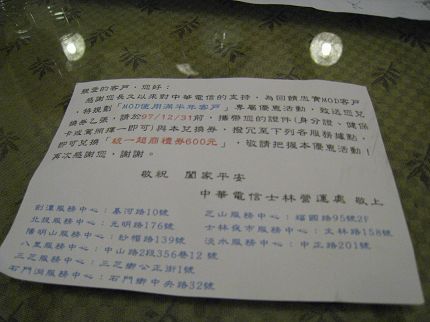 親愛的客戶，您好：
感謝您長久以來對中華電信的支持，為回饋忠實MOD客戶
，特規劃「MOD使用滿半年客戶」專屬優惠活動，致送您兌
換券乙張，請於97/12/31前，攜帶您的證件(身分證、健保
卡或駕照擇一即可)與本兌換券，撥冗至下列各服務據點，
即可兌換「統一超商禮券600元」，敬請把握本優惠活動！
再次感謝您，謝謝。
敬祝 闔家平安
中華電信士林營運處 敬上
劍潭服務中心：基河路10號 芝山服務中心：福國路95號2F
北投服務中心：光明路176號 士林夜市服務中心：文林路158號
陽明山服務中心：紗帽路139號 淡水服務中心：中正路201號
八里服務中心：中山路2段356巷12號
三芝服務中心：三芝鄉公正街1號
石門洞服務中心：石門鄉中央路32號